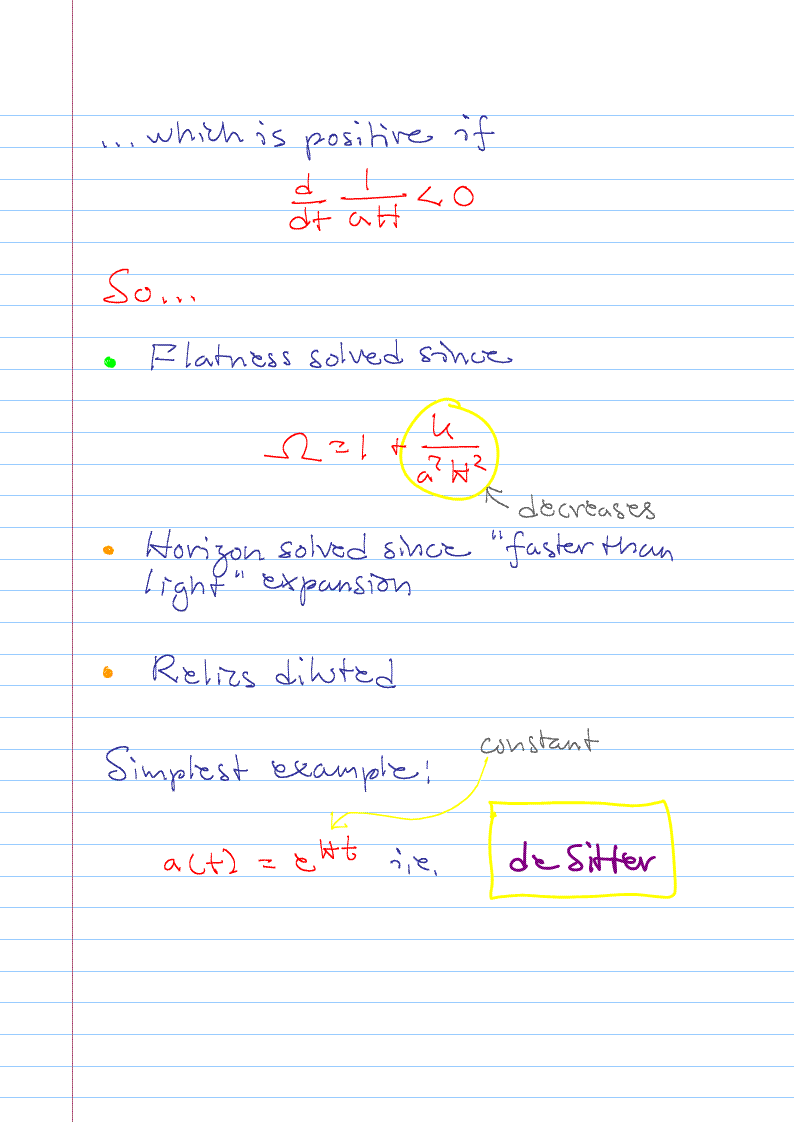 ...which is positive if
d/dt 1/aH < 0
So...
• Flatness solved since
Ω = 1 + k/a²H²
decreases
• Horizon solved since "faster than
light" expansion
• Relics diluted
constant
Simplest example:
a(t) = e^Ht i.e. de Sitter